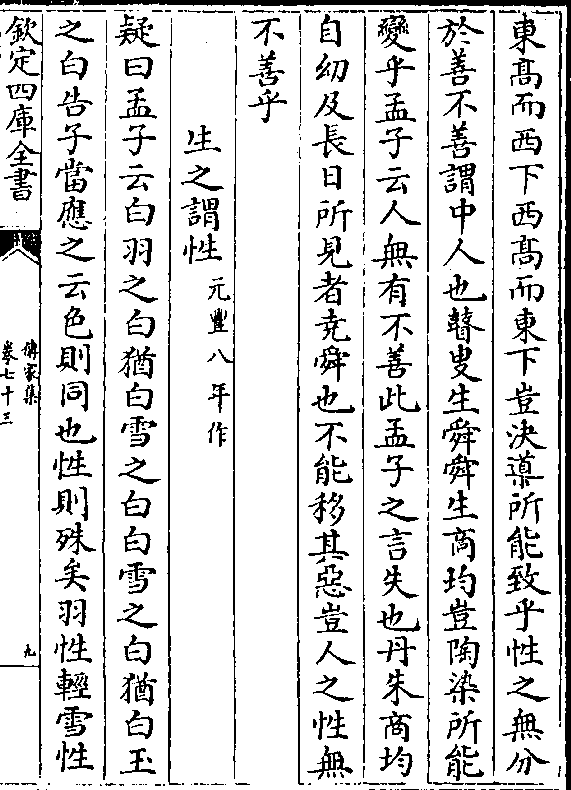 東髙而西下西髙而東下豈決導所能致乎性之無分
於善不善謂中人也瞽叟生舜舜生商均豈陶染所能
變乎孟子云人無有不善此孟子之言失也丹朱商均
自幼及長日所見者堯舜也不能移其惡豈人之性無
不善乎
生之謂性元豐八年作
疑曰孟子云白羽之白猶白雪之白白雪之白猶白玉
之白告子當應之云色則同也性則殊矣羽性輕雪性
欽定四庫全書
傳家集
卷七十三
九